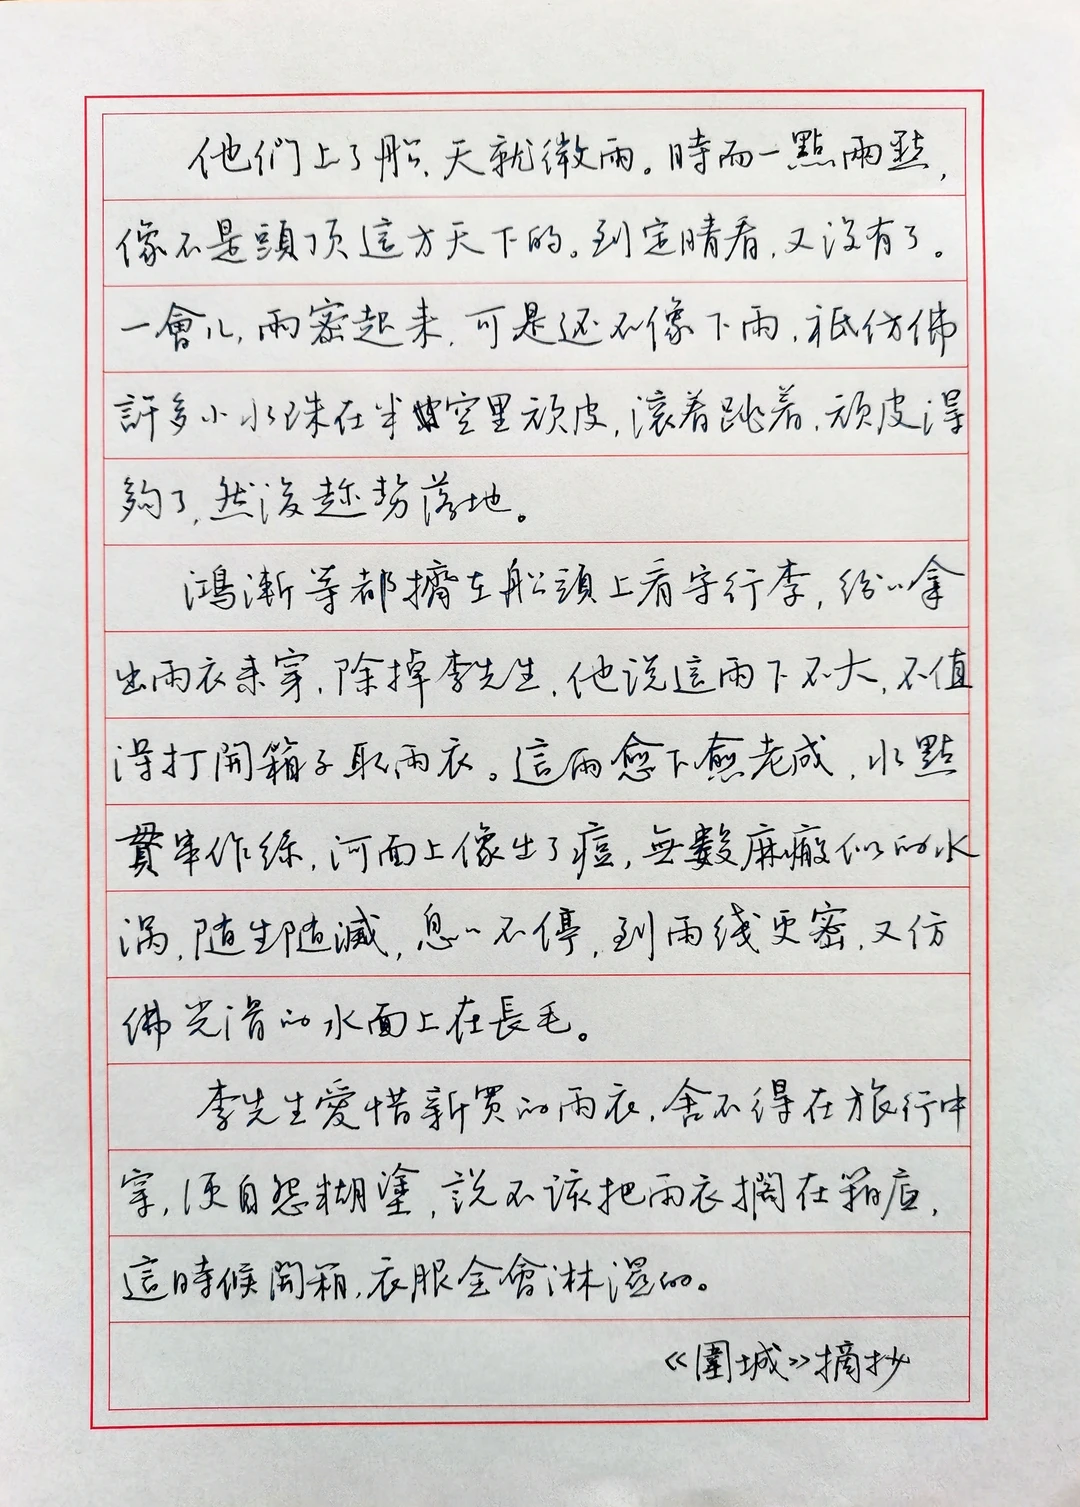 他們上了船、天就微雨。時而一點兩點，
像不是頭頂這方天下的。到定睛看，又没有了。
一會儿，雨密起来，可是还不像下雨，衹仿佛
許多小水珠在半空里顽皮，滚着跳着，顽皮得
夠了，然後趁势落地。
鴻漸等都擠在船頭上看守行李，纷纷拿
出雨衣来穿，除掉李先生，他说這雨下不大，不值
得打開箱子取雨衣。這雨愈下愈老成，水點
貫串作絲，河面上像出了痘，無數麻瘢似的水
涡，随生随滅，息息不停，到雨线更密，又仿
佛光滑的水面上在長毛。
李先生愛惜新買的雨衣，舍不得在旅行中
穿，便自怨糊塗，說不该把雨衣擱在箱底，
這時候開箱，衣服全會淋濕的。
《圍城》摘抄